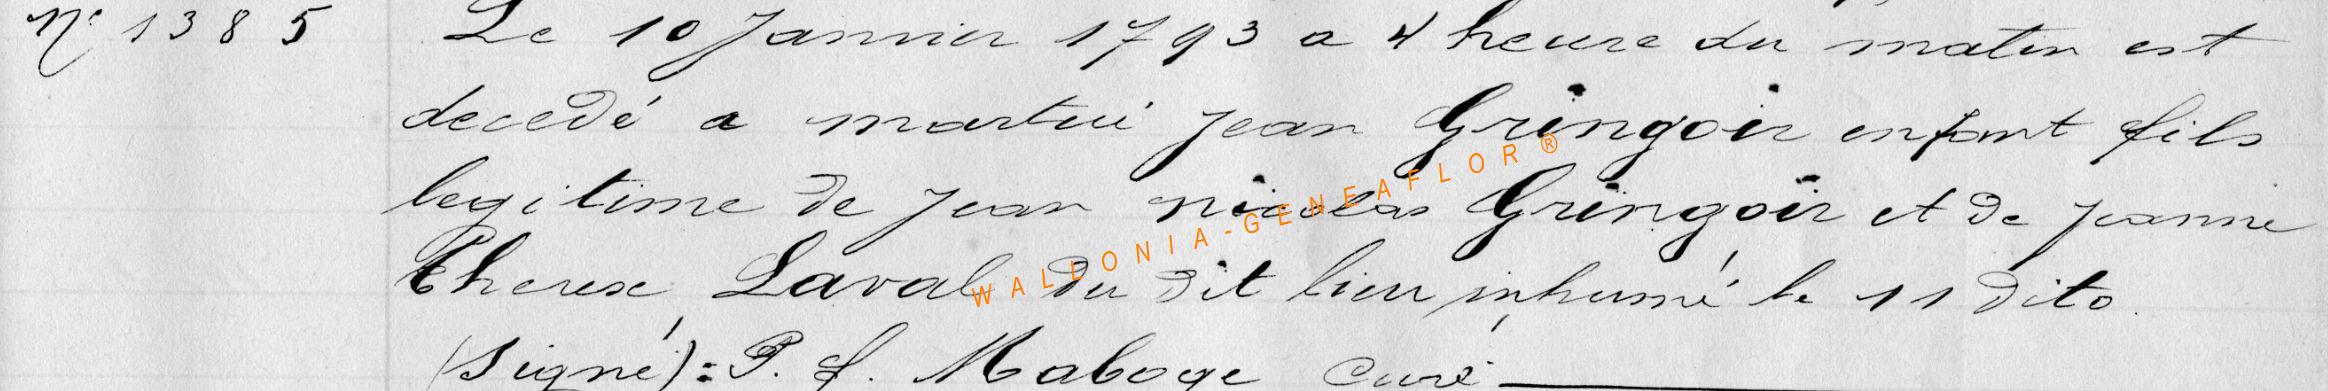 N° 1385 Le 10 Janvier 1793 a 4 heure du matin est
decedé a martué jean Gringoir enfant fils
legitime de jean nicolas Gringoir et de jeanne
Therese Laval du dit lieu inhumé le 11 dito
(signé): P. f. Maboge curé
WALLONIA-GENEAFLOR®